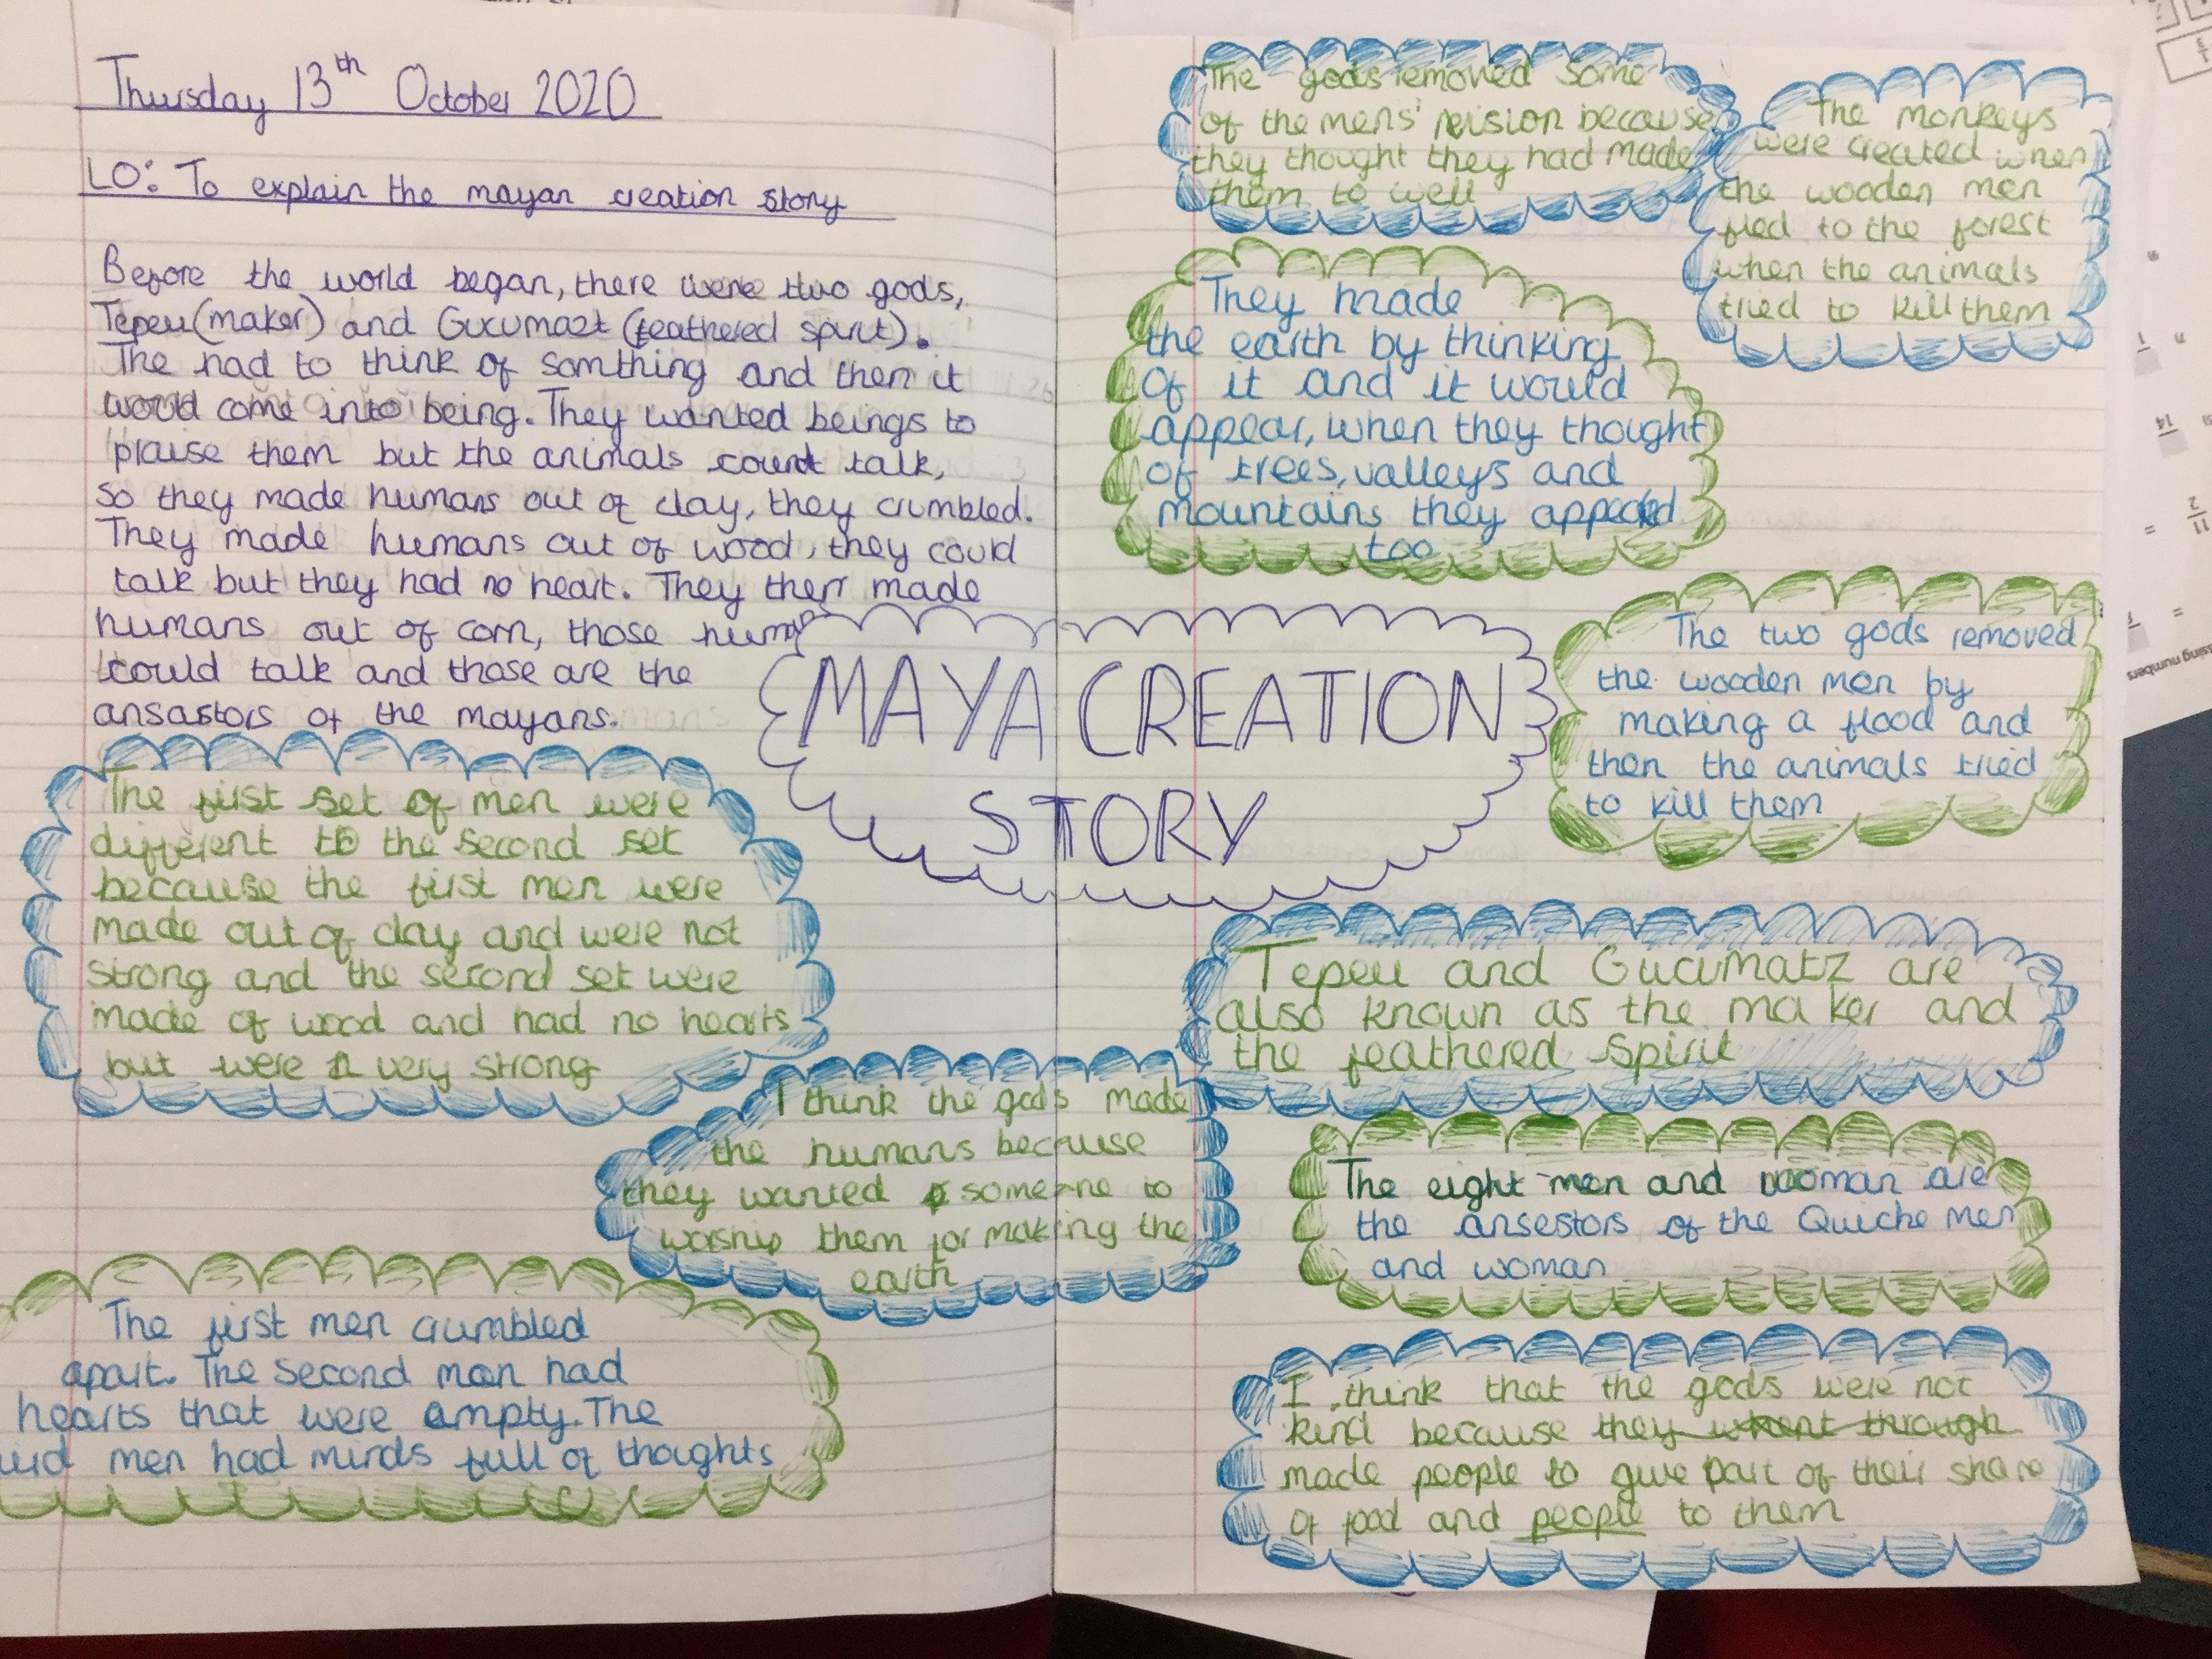 Thursday 13th October 2020
LO: To explain the mayan creation story
Before the world began, there were two gods,
Tepeu (maker) and Gucumazt (feathered spirit).
The had to think of somthing and then it
would come into being. They wanted beings to
praise them but the animals count talk,
so they made humans out of clay, they crumbled.
They made humans out of wood, they could
talk but they had no heart. They then made
humans out of corn, those humans
could talk and those are the
ansastors of the mayans.
MAYA CREATION
STORY
The first set of men were
different to the second set
because the first men were
made out of clay and were not
strong and the second set were
made of wood and had no hearts
but were very strong
I think the gods made
the humans because
they wanted someone to
worship them for making the
earth
The first men crumbled
apart. The second men had
hearts that were empty. The
men had minds full of thoughts
The gods removed some
of the mens' because
they thought they had made
them to well
The monkeys
were created when
the wooden men
fled to the forest
when the animals
tried to kill them
They made
the earth by thinking
of it and it would
appear, when they thought
of trees, valleys and
mountains they appeared
too
The two gods removed
the wooden men by
making a flood and
then the animals tried
to kill them
Tepeu and Gucumatz are
also known as the maker and
the feathered spirit
The eight men and woman are
the ansestors of the Quiche men
and woman
I think that the gods were not
kind because they whent through
made people to give part of their share
of food and people to them